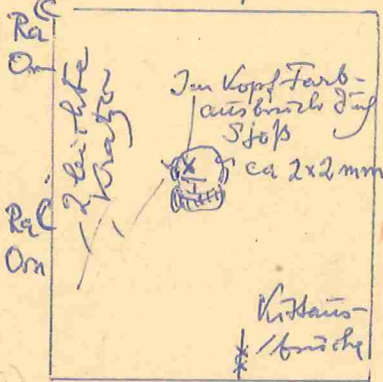 RaC
Om
2 leichte
Kratzer
Im Kopf Farb-
ausbruch
Stoß
ca 2x2 mm
RaC
Om
Kittaus-
brüche